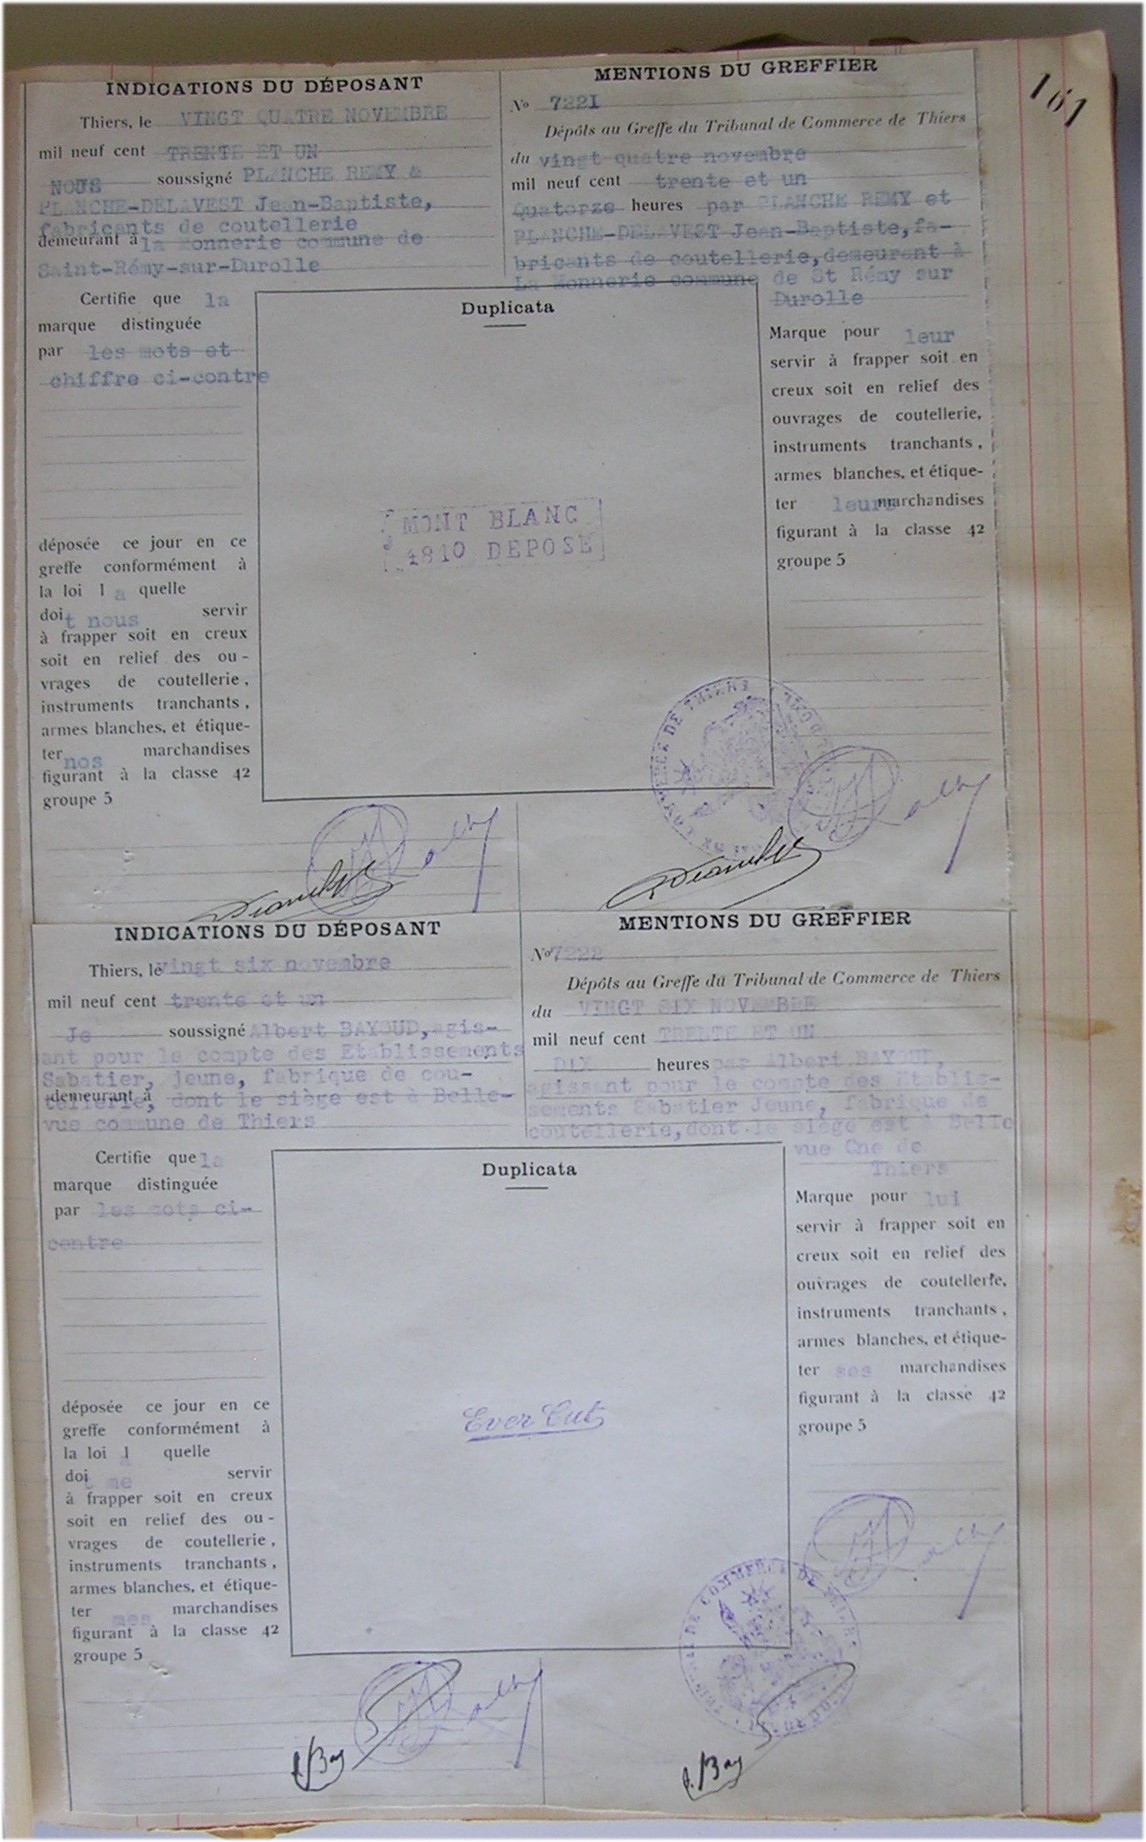 161
INDICATIONS DU DÉPOSANT
Thiers, le VINGT QUATRE NOVEMBRE
mil neuf cent TRENTE ET UN
NOUS soussigné PLANCHE REMY &
PLANCHE-DELAVEST Jean-Baptiste,
fabricants de coutellerie
demeurant à la Monnerie commune de
Saint-Rémy-sur-Durolle
Certifie que la
marque distinguée
par les mots et
chiffre ci-contre
déposée ce jour en ce
greffe conformément à
la loi la quelle
doit nous servir
à frapper soit en creux
soit en relief des ou-
vrages de coutellerie,
instruments tranchants,
armes blanches, et étique-
ter nos marchandises
figurant à la classe 42
groupe 5
Duplicata
MONT BLANC
4810 DEPOSE
MENTIONS DU GREFFIER
No 7221
Dépôts au Greffe du Tribunal de Commerce de Thiers
du vingt quatre novembre
mil neuf cent trente et un
Quatorze heures par PLANCHE REMY et
PLANCHE-DELAVEST Jean-Baptiste, fa-
bricants de coutellerie, demeurant à
La Monnerie commune de St Rémy sur
Durolle
Marque pour leur
servir à frapper soit en
creux soit en relief des
ouvrages de coutellerie,
instruments tranchants,
armes blanches, et étique-
ter leurs marchandises
figurant à la classe 42
groupe 5
INDICATIONS DU DÉPOSANT
Thiers, le vingt six novembre
mil neuf cent trente et un
Je soussigné Albert BAYOUD, agis-
sant pour le compte des Etablissements
Sabatier, jeune, fabrique de cou-
demeurant à
tellerie, dont le siège est à Belle-
vue commune de Thiers
Certifie que la
marque distinguée
par les mots ci-
contre
déposée ce jour en ce
greffe conformément à
la loi la quelle
doit me servir
à frapper soit en creux
soit en relief des ou-
vrages de coutellerie,
instruments tranchants,
armes blanches, et étique-
ter mes marchandises
figurant à la classe 42
groupe 5
Duplicata
Ever Cut
MENTIONS DU GREFFIER
No 7222
Dépôts au Greffe du Tribunal de Commerce de Thiers
du VINGT SIX NOVEMBRE
mil neuf cent TRENTE ET UN
DIX heures par Albert BAYOUD,
agissant pour le compte des Etablis-
sements Sabatier Jeune, fabrique de
coutellerie, dont le siège est à Belle
vue Cne de
Thiers
Marque pour lui
servir à frapper soit en
creux soit en relief des
ouvrages de coutellerie,
instruments tranchants,
armes blanches, et étique-
ter ses marchandises
figurant à la classe 42
groupe 5